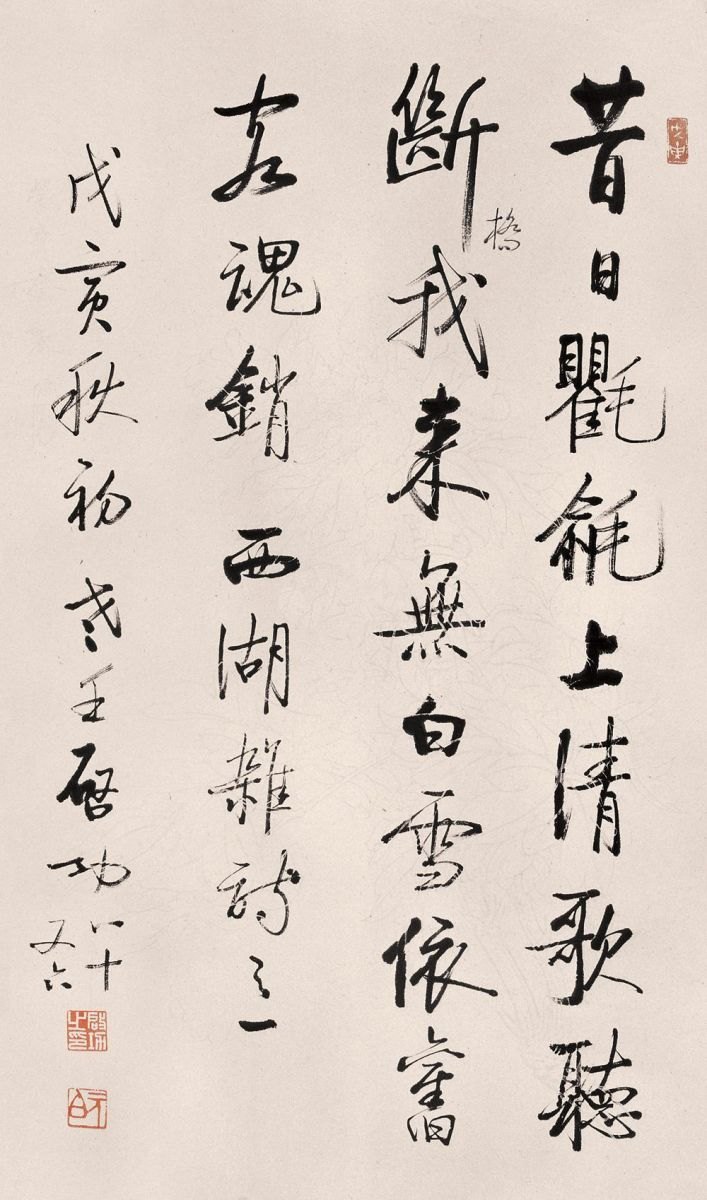 昔日氍毹上清歌聽
斷橋我来無白雪依舊
客魂銷 西湖雜詩之一
戊寅秋初 啓功 八十又六
啟功之印
元白